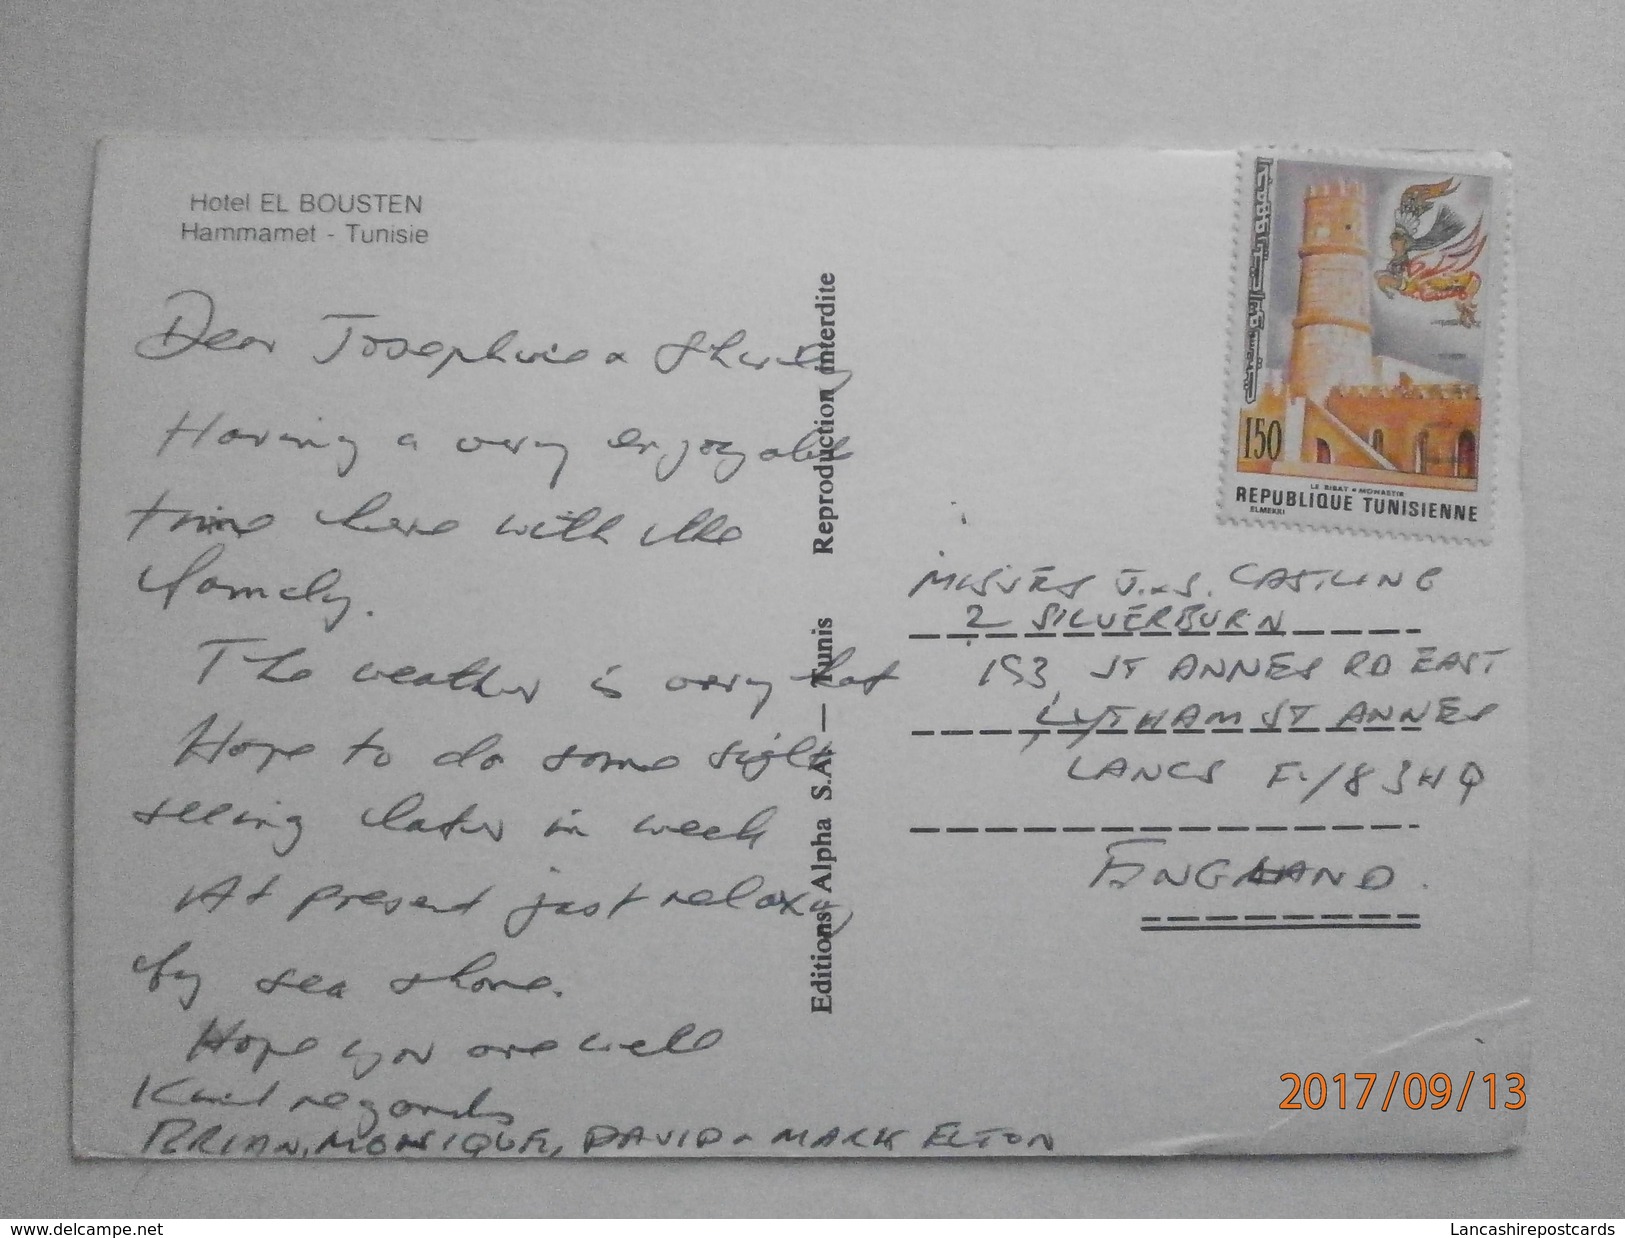 Hotel EL BOUSTEN
Hammamet - Tunisie
Dear Josephine & Shirley
Having a very enjoyable
time here with the
family.
The weather is very hot
Hope to do some sight
seeing later in week
At present just relaxing
by sea shore.
Hope you are well
Kind regards
BRIAN, MONIQUE, DAVID & MARK ELTON
Editions Alpha S.A. — Tunis Reproduction interdite
150
LE RIBAT - MONASTIR
REPUBLIQUE TUNISIENNE
ELMEKKI
MISSES J. & S. CASTLING
2 SILVERBURN
193 ST ANNES RD EAST
LYTHAM ST ANNES
LANCS FY8 3HQ
ENGLAND.
2017/09/13
www.delcampe.net
Lancashirepostcards